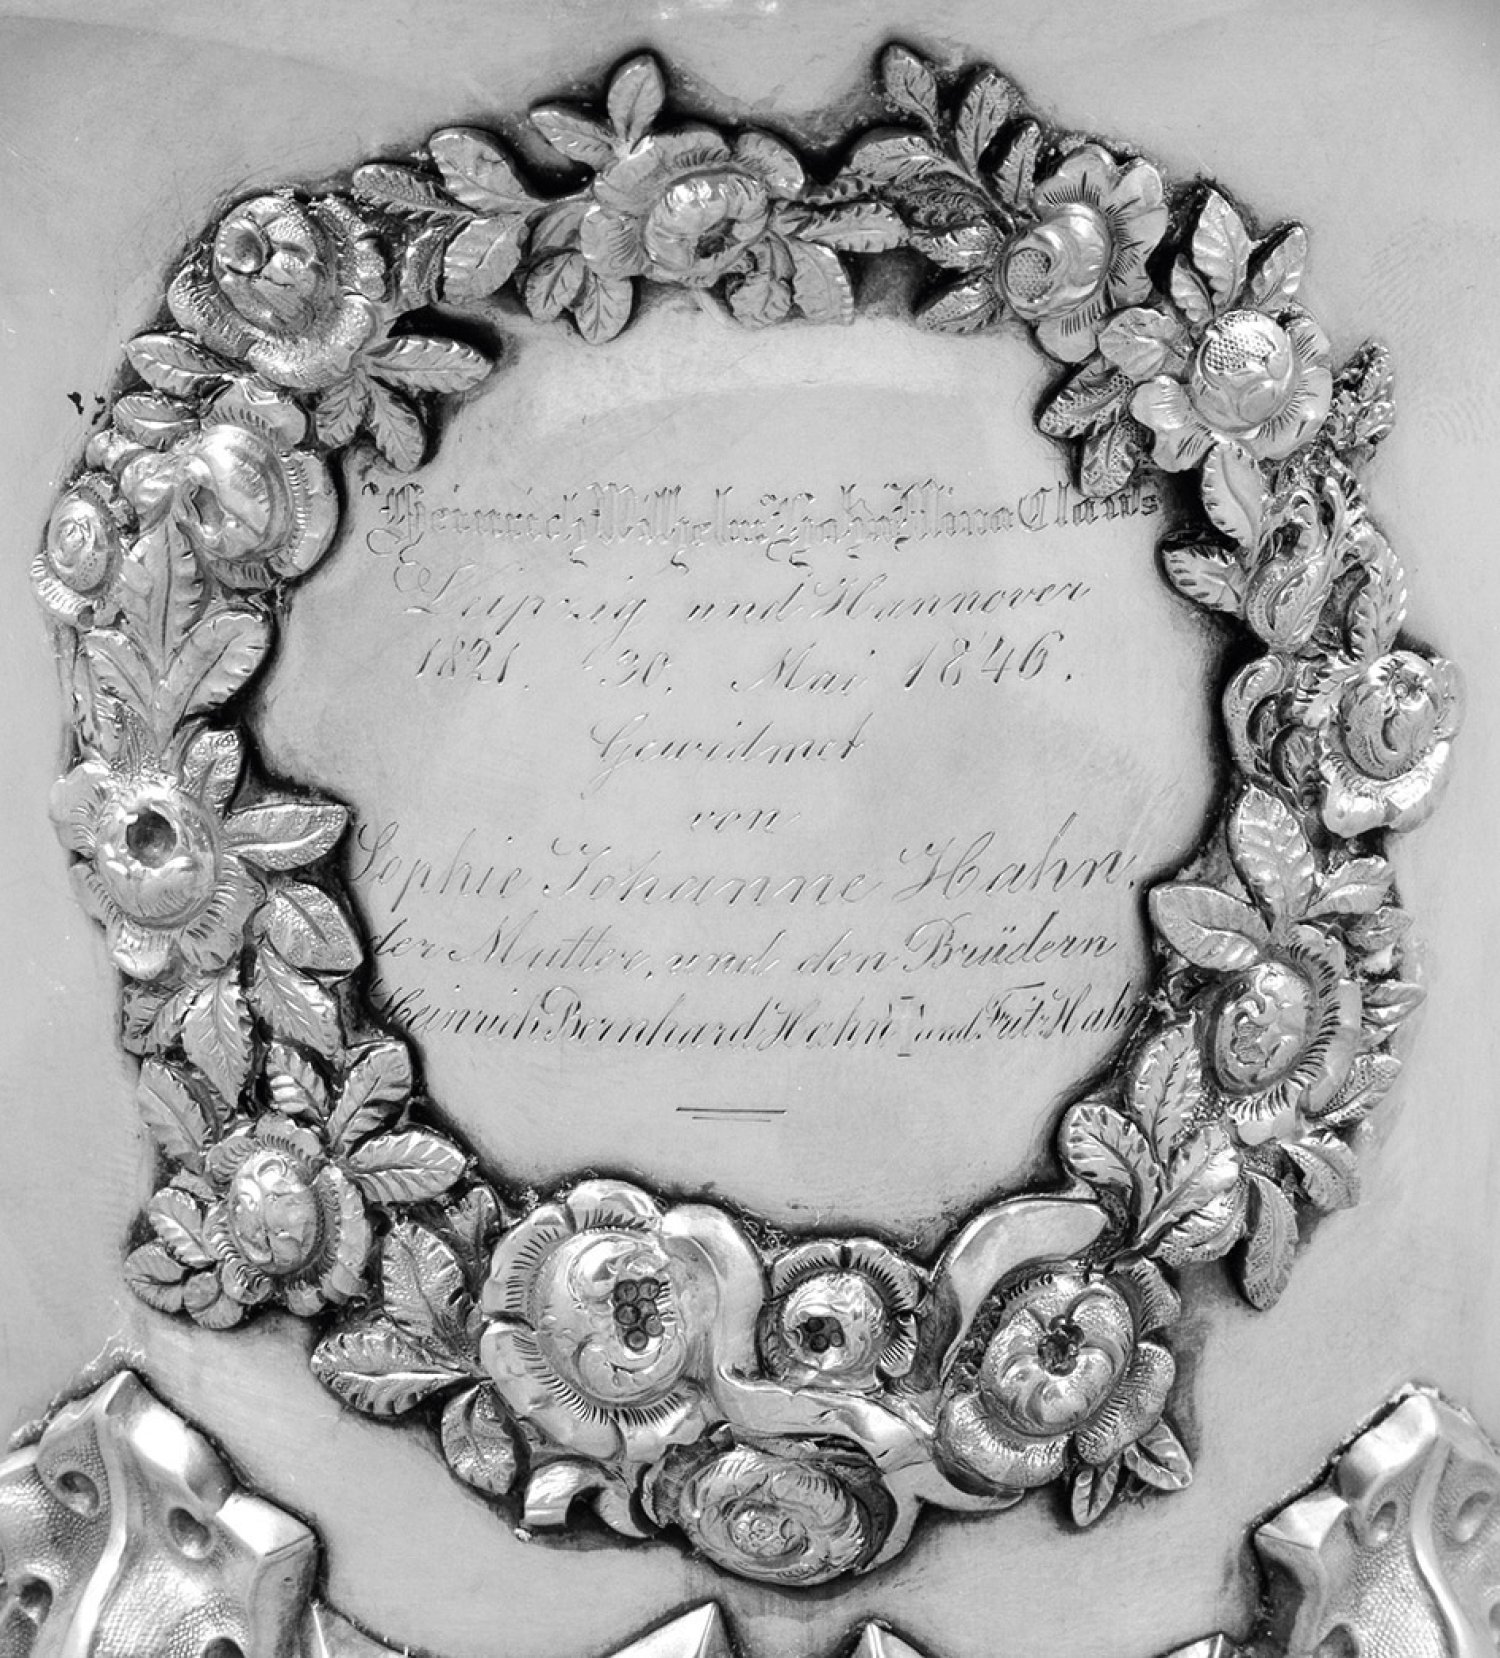 Heinrich Wilhelm Hahn Mina Claus
Leipzig und Hannover
1821. 30. Mai 1846.
Gewidmet
von
Sophie Johanne Hahn,
der Mutter, und den Brüdern
Heinrich Bernhard Hahn und Fritz Hahn